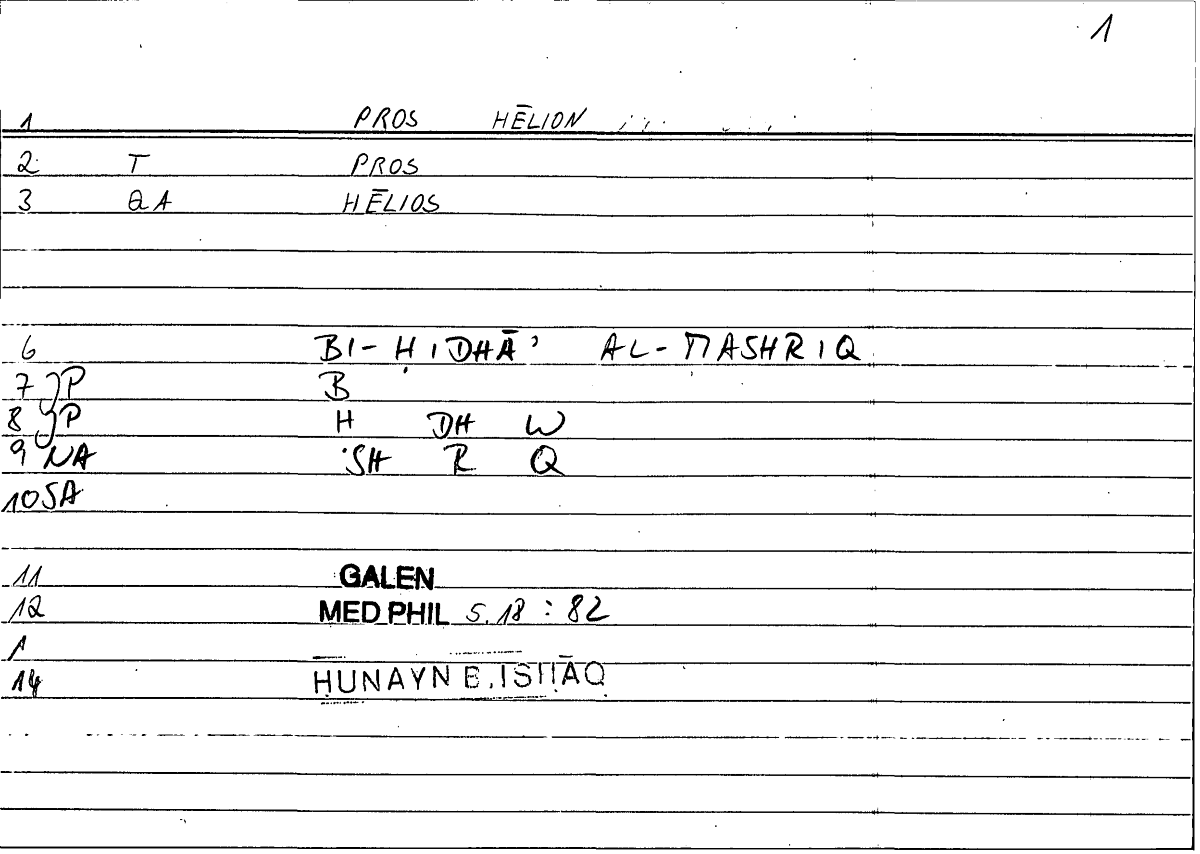 1
1 PROS HĒLION
2 T PROS
3 QA HĒLIOS
6 BI-ḤIDHĀʾ AL-MASHRIQ
7 JP B
8 JP H DH W
9 NA SH R Q
10 SA
11 GALEN
12 MED PHIL 5.18 : 82
1
14 ḤUNAYN B. ISḤĀQ